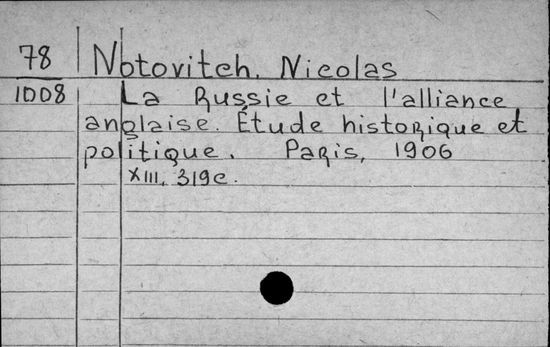 78 Notovitch, Nicolas
1008 La Russie et l'alliance
anglaise. Étude historique et
politique. Paris, 1906
XIII, 319c.